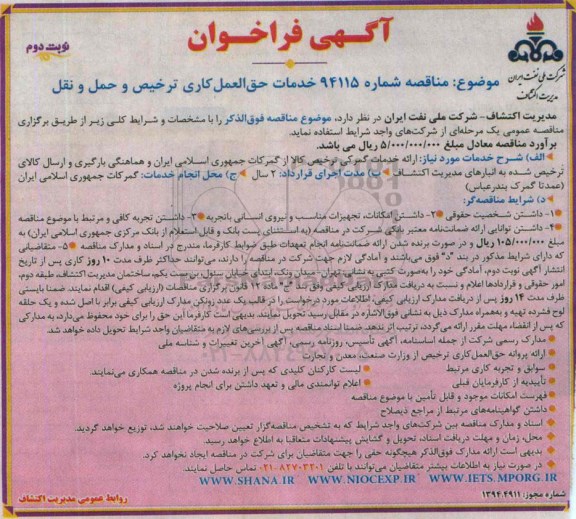 آگهی فراخوان
نوبت دوم
شرکت ملی نفت ایران
مدیریت اکتشاف
موضوع: مناقصه شماره ۹۴۱۱۵ خدمات حق‌العمل‌کاری ترخیص و حمل و نقل
مدیریت اکتشاف- شرکت ملی نفت ایران در نظر دارد، موضوع مناقصه فوق‌الذکر را با مشخصات و شرایط کلی زیر از طریق برگزاری
مناقصه عمومی یک مرحله‌ای از شرکت‌های واجد شرایط استفاده نماید.
برآورد مناقصه معادل مبلغ ۵/۰۰۰/۰۰۰/۰۰۰ ریال می باشد.
الف) شرح خدمات مورد نیاز: ارائه خدمات گمرکی ترخیص کالا از گمرکات جمهوری اسلامی ایران و هماهنگی بارگیری و ارسال کالای
ترخیص شده به انبارهای مدیریت اکتشاف ب) مدت اجرای قرارداد: ۲ سال ج) محل انجام خدمات: گمرکات جمهوری اسلامی ایران
(عمدتا گمرک بندرعباس)
د) شرایط مناقصه‌گر:
۱- داشتن شخصیت حقوقی ۲- داشتن امکانات، تجهیزات مناسب و نیروی انسانی باتجربه ۳- داشتن تجربه کافی و مرتبط با موضوع مناقصه
۴- داشتن توانایی ارائه ضمانت‌نامه معتبر بانکی شرکت در مناقصه (به استثنای پست بانک و قابل استعلام از بانک مرکزی جمهوری اسلامی ایران) به
مبلغ ۱۰۵/۰۰۰/۰۰۰ ریال و در صورت برنده شدن ارائه ضمانت‌نامه انجام تعهدات طبق ضوابط کارفرما، مندرج در اسناد و مدارک مناقصه ۵- متقاضیانی
که دارای شرایط مذکور در بند "د" فوق می‌باشند و آمادگی لازم جهت شرکت در مناقصه را دارند، می‌توانند حداکثر ظرف مدت ۱۰ روز کاری پس از تاریخ
انتشار آگهی نوبت دوم، آمادگی خود را به‌صورت کتبی به نشانی تهران، میدان ونک، ابتدای خیابان سئول، بن‌بست یکم، ساختمان مدیریت اکتشاف، طبقه دوم،
امور حقوقی و قراردادها اعلام و نسبت به دریافت مدارک ارزیابی کیفی وفق بند ماده ۱۲ قانون برگزاری مناقصات (ارزیابی کیفی) اقدام نمایند. ضمنا بایستی
ظرف مدت ۱۴ روز پس از دریافت مدارک ارزیابی کیفی، اطلاعات مورد درخواست را در قالب یک عدد زونکن مدارک ارزیابی کیفی برابر با اصل شده و یک حلقه
لوح فشرده تهیه و به‌همراه مدارک ذیل به نشانی فوق‌الاشاره در مقابل رسید تحویل نمایند. بدیهی است کارفرما این حق را برای خود محفوظ می‌دارد، به مدارکی
که پس از انقضاء مهلت مقرر ارائه می‌گردد، ترتیب اثر ندهد. ضمنا اسناد مناقصه پس از بررسی‌های لازم به متقاضیان واجد شرایط تحویل داده خواهد شد.
مدارک رسمی شرکت از جمله اساسنامه، آگهی تأسیس، روزنامه رسمی، آگهی آخرین تغییرات و شناسه ملی
ارائه پروانه حق‌العمل‌کاری ترخیص از وزارت صنعت، معدن و تجارت
سوابق و تجربه کاری مرتبط لیست کارکنان کلیدی که پس از برنده شدن در مناقصه همکاری می‌نمایند.
تأییدیه از کارفرمایان قبلی اعلام توانمندی مالی و تعهد داشتن برای انجام پروژه
فهرست امکانات موجود و قابل تأمین با موضوع مناقصه
داشتن گواهینامه‌های مرتبط از مراجع ذیصلاح
اسناد و مدارک مناقصه بین شرکت‌های واجد شرایط که به تشخیص مناقصه‌گزار تعیین صلاحیت خواهند شد، توزیع خواهد گردید.
محل، زمان و مهلت دریافت اسناد، تحویل و گشایش پیشنهادات متعاقبا به اطلاع خواهد رسید.
بدیهی است ارائه مدارک فوق‌الذکر هیچگونه حقی را جهت متقاضیان برای شرکت در مناقصه ایجاد نخواهد کرد.
در صورت نیاز به اطلاعات بیشتر متقاضیان می‌توانند با تلفن ۸۲۷۰۳۲۰۱-۰۲۱ تماس حاصل نمایند.
WWW.SHANA.IR WWW.NIOCEXP.IR WWW.IETS.MPORG.IR
روابط عمومی مدیریت اکتشاف
شماره مجوز: ۱۳۹۴.۴۹۱۱